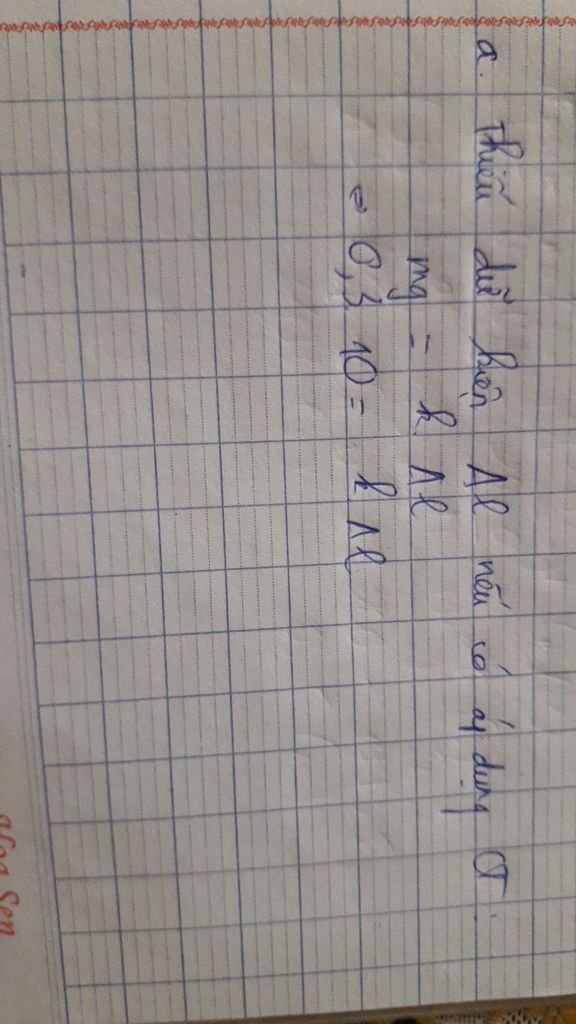 a. Thiếu dữ kiện Δl nếu có áp dụng CT:
mg = k Δl
⇔ 0,3 10 = k Δl
Hoa Sen